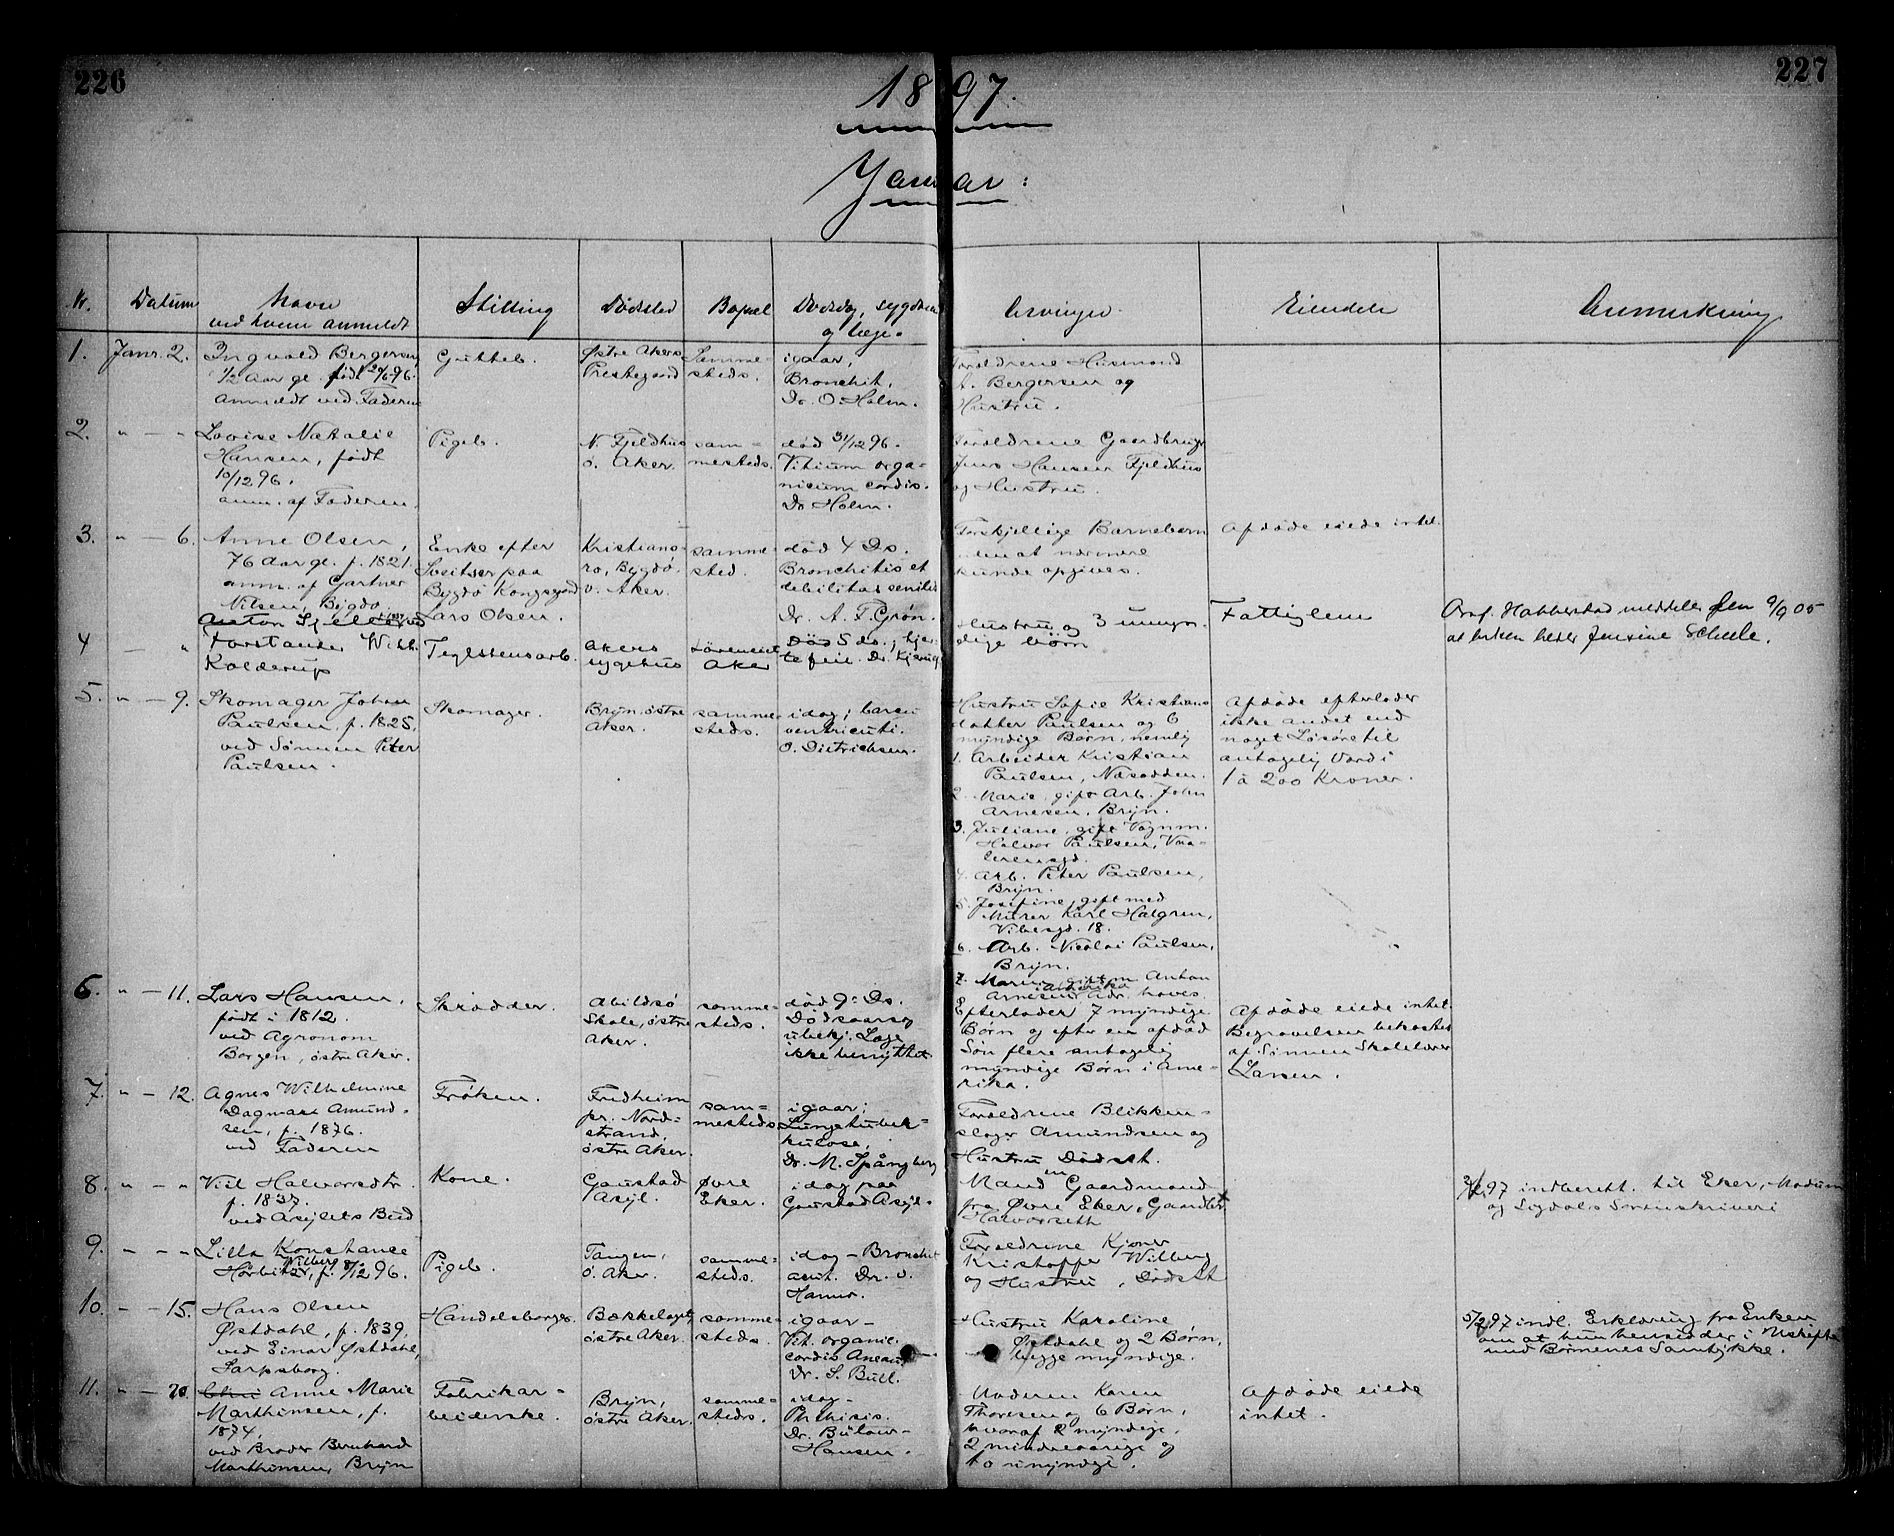 226
1897.
227
Januar:
Nr.
Datum
Navn
ved hvem anmeldt
Stilling
Dødssted
Bopæl
Dødsdag, sygdom
og læge.
Arvinger.
Eiendele
Anmerkning
1. Janr. 2.
Ingvald Bergersen,
1/2 Aar gl. født 26/6 96.
Anmeldt ved Faderen
Gutteb.
Østre Akers
Prestegaard
Samme-
steds.
igaar,
Bronchit.
Dr. O. Holm.
Forældrene Husmand
A. Bergersen og
Hustru.
2. " — "
Lovise Natalie
Hansen, født
10/12 96.
anm. af Faderen.
Pigeb.
N. Fjeldhus
ö. Aker.
sam-
mesteds.
død 31/12 96.
Vitium orga-
nicum cordis.
Dr Holm.
Forældrene Gaardbruger
Jens Hansen Fjeldhus
og Hustru.
3. " — 6.
Anne Olsen,
76 Aar gl. f. 1821.
anm. af Gartner
Nilsen, Bygdø.
Enke efter
Sveitser paa
Bygdø Kongsgaard
Lars Olsen.
Kristians-
ro, Bygdø.
v. Aker.
samme-
sted.
død 4 Ds.
Bronchitis et
debilitas senilis
Dr. A. F. Grøn.
Forskjellige Barnebørn
uden at nærmere
kunde opgives.
Afdøde eiede intet.
4 — "
Anton
Forstander Wilh.
Kolderup
Teglstensarb.
Akers
sygehus
Aker
Død 5 ds.; hjer-
tefeil. Dr.
Hustru og 3 umyn-
dige börn
Fattiglem
Meddeles den 9/9 05
at enken heder Jensine Scheele.
5. " — 9.
Skomager Johan
Paulsen, f. 1825,
ved Sønnen Peter
Paulsen.
Skomager.
Bryn, østre
Aker.
samme-
steds.
idag;
ventriculi.
O. Dietrichsen.
Hustru Sofie Kristians
datter Paulsen og 6
myndige Børn, nemlig
1. Arbeider Kristian
Paulsen, Næsodden.
2. Marie, gift Arb. John
Arnesen, Bryn.
3. Juliane, gift Vognm.
Halvor Paulsen, Vaa-
lerengd.
4. Arb. Peter Paulsen,
Bryn.
5. Josefine, gift med
Murer Karl Halgren,
Vibesgd. 18.
6. Arb. Nicolai Paulsen,
Bryn.
7. Maren, gift m Anton
Arnesen, Amerika Adr. haves.
Afdøde efterlader
ikke andet end
noget Løsøre til
antagelig Værdi
1 à 200 Kroner.
6. " — 11.
Lars Hansen,
født i 1812.
ved Agronom
Borgen, østre Aker.
Skrædder.
Abildsö
Skole, østre
Aker.
samme-
steds.
død 9. Ds.
Dødsaarsag
ubekj. Læge
ikke benyttet.
Efterlader 7 myndige
Børn og efter en afdød
Søn flere antagelig
myndige Børn i Ame-
rika.
Afdøde eiede intet.
Begravelsen bekostes
af Sønnen Skolelærer
Larsen.
7. " — 12.
Agnes Wilhelmine
Dagmar Amund-
sen, f. 1876.
ved Faderen
Frøken.
Fredheim
pr. Nord-
strand,
østre Aker.
sam-
mesteds
igaar;
Lungetuber-
kulose,
Dr. M. Spångberg
Forældrene Blikken-
slager Amundsen og
Hustru Dødsatt.
8. " — "
Viel Halvorsdtr.
f. 1837.
ved Asylets Bud
Kone.
Gaustad
Asyl.
Øvre
Eker.
idag paa
Gaustad Asyl.
Manden Gaardmand
fra Øvre Eker,
97 indberett. til Eker, Modum
og Sigdals Sorenskriveri
9. — — "
Lilla Konstance
Wilberg
f. 8/12 96.
Pigeb.
Tangen,
ö. Aker.
samme-
steds.
idag — Bronchit
acut. Dr. v.
Hanno.
Forældrene
Kristoffer Wilberg
og Hustru, Dødsatt
10. — — 15.
Hans Olsen
Østdahl, f. 1839,
ved Einar Østdahl,
Sarpsborg.
Handelsborger
Bækkelaget,
østre Aker.
samme-
steds.
igaar —
Vit. organic.
cordis
Dr. S. Bull.
Hustru Karoline
Østdahl og 2 Børn,
begge myndige.
5/2 97 indl. Erklæring fra Enken
om at hun hensidder i Uskiftet
med Børnenes Samtykke.
11. " — 20.
Anne Marie
Marthinsen, f.
1874,
ved Broder Bernhard
Marthinsen, Bryn
Fabrikar-
beiderske.
Bryn,
østre Aker.
samme-
steds.
idag —
Phthisis.
Dr. Bülow-
Hansen.
Moderen Karen
Thoresen og 6 Børn,
hvoraf 2 myndige,
2 mindreaarige og
to umyndige.
Afdøde eiede
intet.